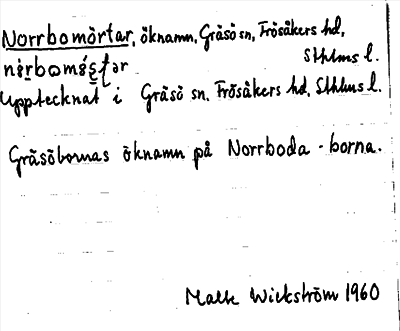 Norrbomörtar, öknamn, Gräsö sn, Frösåkers hd,
Sthlms l.
Upptecknat i Gräsö sn. Frösåkers hd, Sthlms l.
Gräsöbornas öknamn på Norrboda-borna.
Wickström 1960